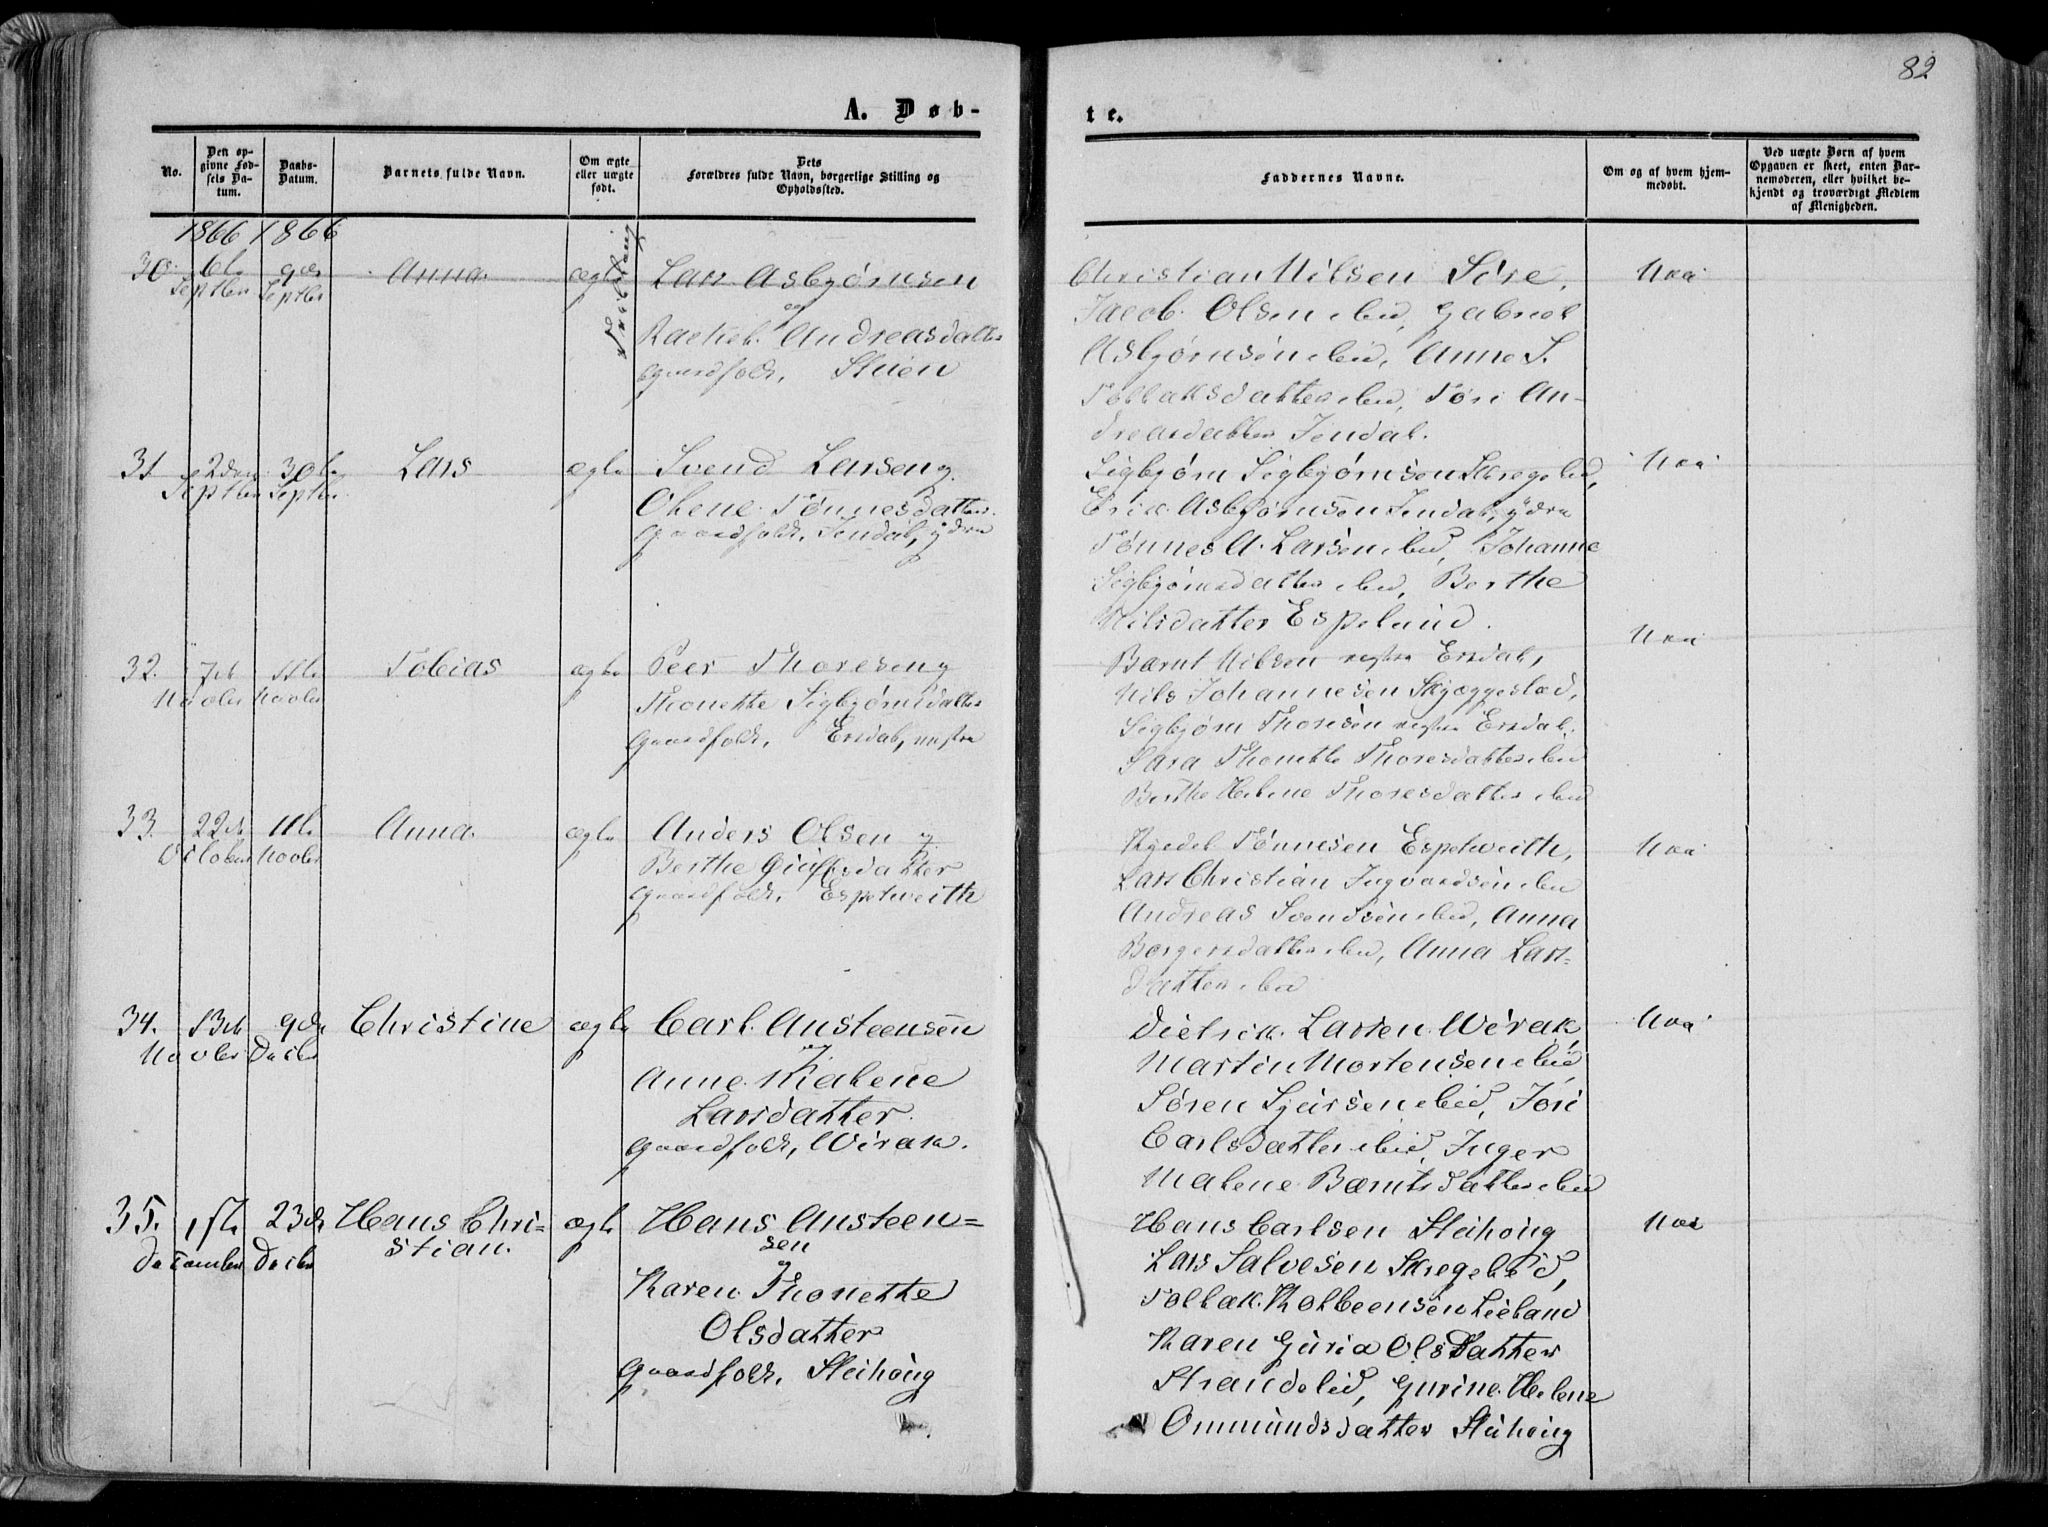 82
A. Døb-
te.
No.
Den op-
givne Fød-
sels Da-
tum.
Daabs-
Datum.
Barnets fulde Navn.
Om ægte
eller uægte
født.
Dets
Forældres fulde Navn, borgerlige Stilling og
Opholdssted.
Faddernes Navne.
Om og af hvem hjem-
medøbt.
Ved uægte Børn af hvem
Opgaven er skeet, enten Bar-
nemoderen, eller hvilket be-
kjendt og troværdigt Medlem
af Menigheden.
1866 1866
30. 6te 9de Anna. ægte Lars Asbjørnsen
Septber Septber og
Rachel Andreasdatter
Gaardfolk, Stuen
Christian Nilsen Söre, Naa
Jacob Olsen ibid, Gabriel
Asbjørnsen ibid, Anne S.
Tollaksdatter ibid, Tóri An-
dreasdatter Jendal.
31 2den 30te Lars ægte Svend Larsen og
Septber Septbr. Olene Tónnesdatter.
Gaardfolk, Jendal, ydra
Sigbjørn Sigbjørnsen Skregelid, Naa
Erik Asbjørnsen Jendal, ydra
Tónnes A. Larsen ibid, Johanne
Sigbjørnsdatter ibid, Berthe
Nilsdatter Espelund.
32. 7de 11te Tobias ægte Peer Thoresen og
Novber Novber Thonette Sigbjørnsdatter
Gaardfolk, Ersdal, vestra
Bærnt Nilsen vestra Ersdal, Naa
Nils Johannesen Skjæggestad,
Sigbjørn Thoresen vestra Ersdal.
Sara Thonette Thoresdatter ibid
Berthe Helene Thoresdatter ibid
33. 22de 11te Anna. ægte Anders Olsen og
October Novber Berthe datter
Gaardfolk, Espetweith
Kjedel Tónnesen Espetweith, Naa
Lars Christian Ingvardsen ibid
Andreas Svendsen ibid, Anna
Borgersdatter ibid, Anna Lars-
datter ibid
34. 13de 9de Christine ægte Carl Austeensen
Novber Decber og
Anne Malene
Larsdatter.
Gaardfolk, Wirak.
Dietrik Larsen Wirak, Naa
Martin Mortensen ibid
Sóren Sjursen ibid, Jóri
Carlsdatter ibid, Inger
Malene Bærntsdatter ibid
35. 1ste 23de Hans Chri- ægte Hans Austeen-
December Decber stian. sen
og
Karen Thonette
Olsdatter
Gaardfolk, Steihoug
Hans Carlsen Steihoug Naa
Lars Salvesen Skregelid,
Tollak Kolbeensen Lieland
Karen Guria Olsdatter
Strandelid, Gurine Helene
Ommundsdatter Steihoug